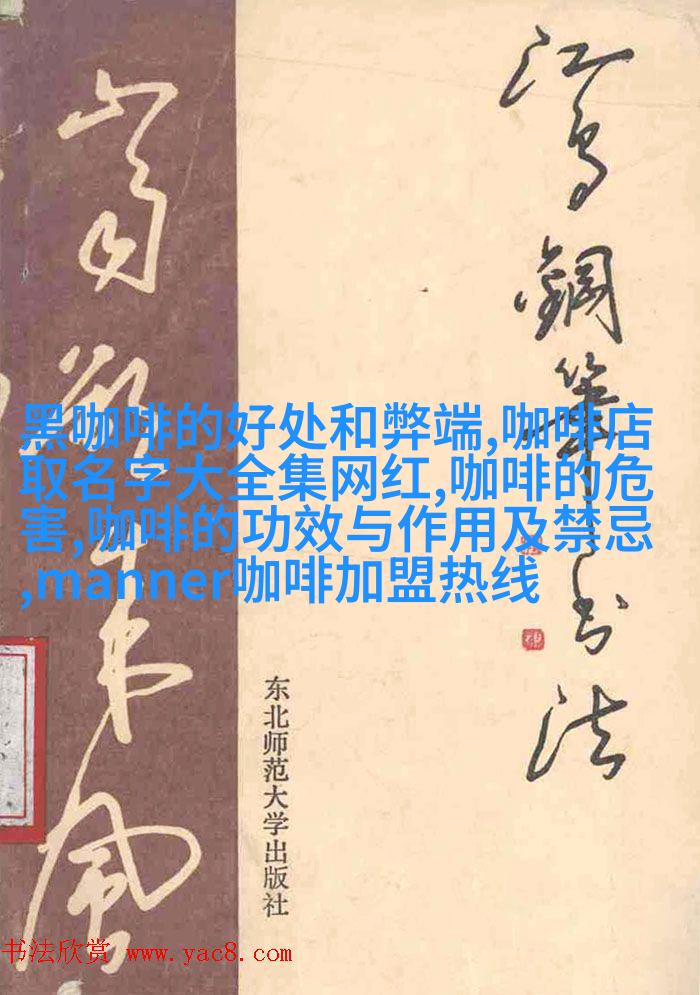 江鸟鋼筆书法
黑咖啡的好处和弊端,咖啡店
取名字大全集网红,咖啡的危
害,咖啡的功效与作用及禁忌
,manner咖啡加盟热线
东北师范大学出版社
书法欣赏 www.yac8.com